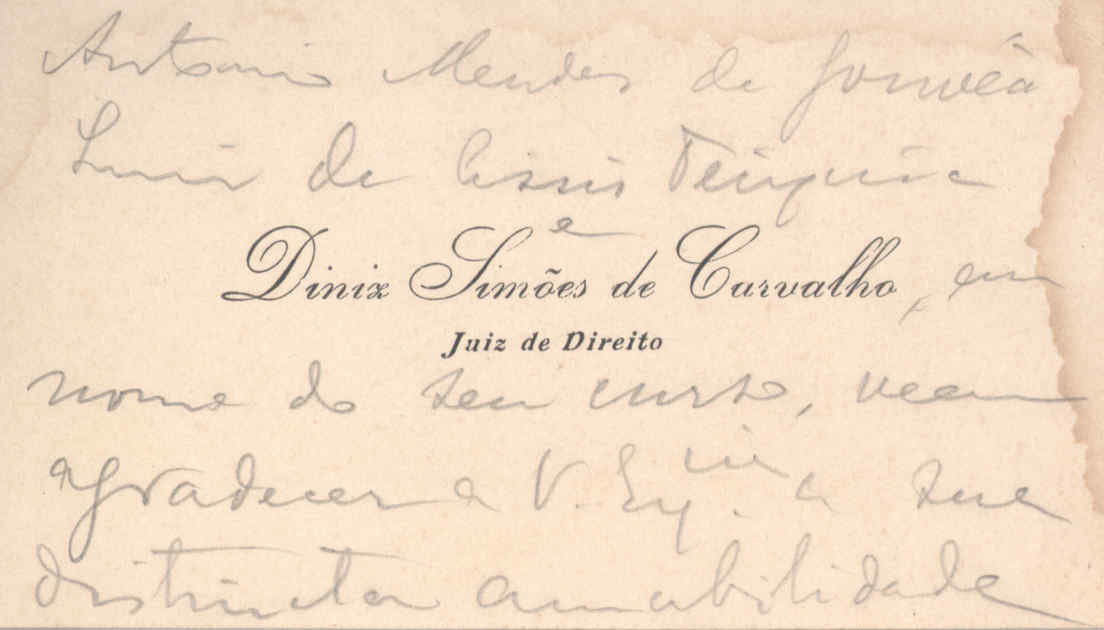 Antonio Mendes de Gouvêa
Luiz de Assis Teixeira
e
Diniz Simões de Carvalho, em
Juiz de Direito
nome do seu curso, veem
agradecer a V. Ex.cia a sua
distincta amabilidade